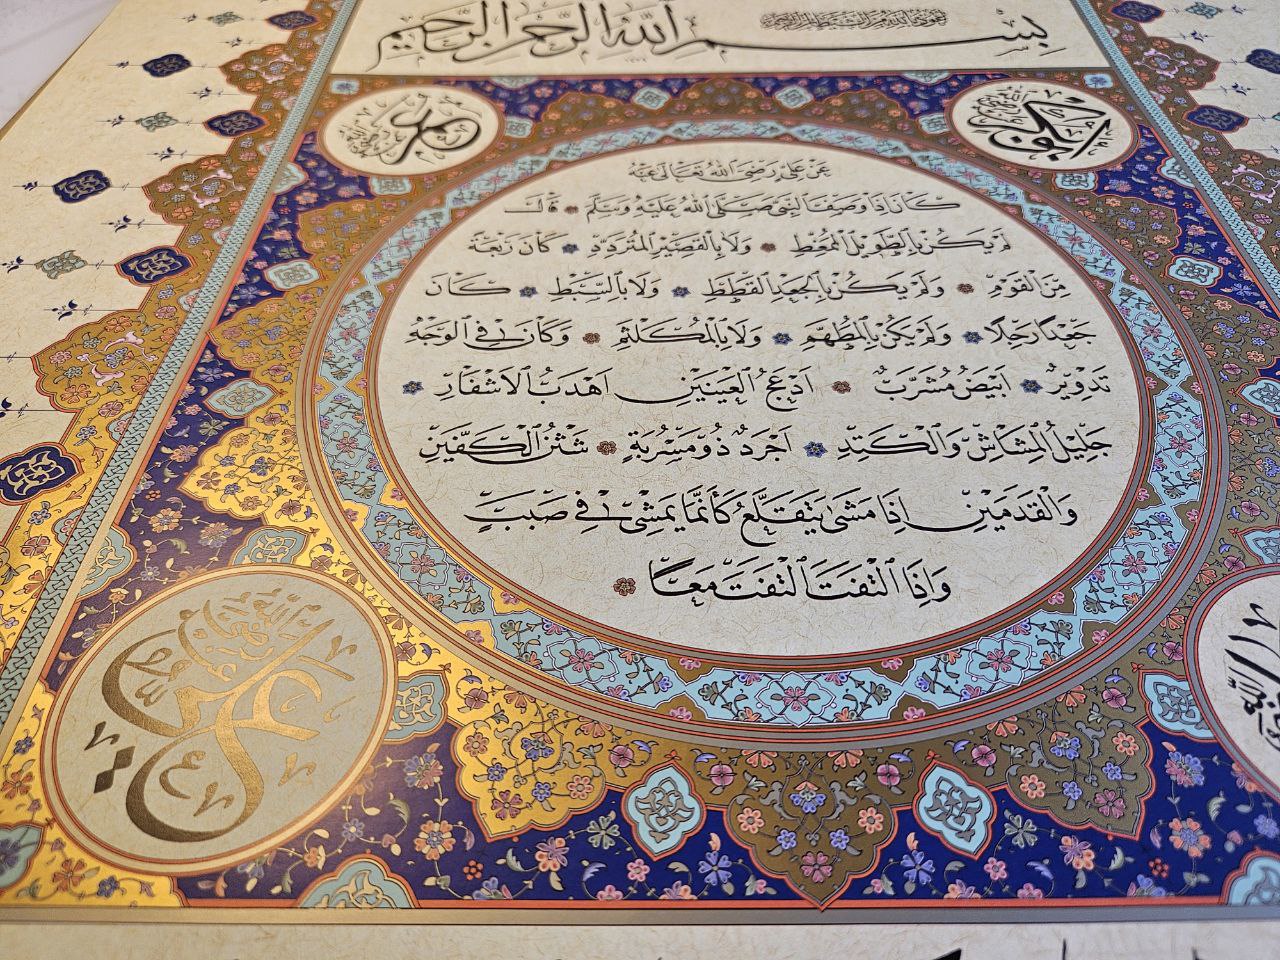 نعوذ بالله من الشيطان الرجيم
بِسْمِ اللهِ الرَّحْمٰنِ الرَّحِيمِ
أبو بكر رضي الله عنه
عمر رضي الله عنه
عَنْ عَلِيٍّ رَضِيَ اللهُ تَعَالَى عَنْهُ
كَانَ إِذَا وَصَفَ النَّبِيَّ صَلَّى اللهُ عَلَيْهِ وَسَلَّمَ قَالَ
لَمْ يَكُنْ بِالطَّوِيلِ الْمُمَّغِطِ وَلَا بِالْقَصِيرِ الْمُتَرَدِّدِ كَانَ رَبْعَةً
مِنَ الْقَوْمِ وَلَمْ يَكُنْ بِالْجَعْدِ الْقَطَطِ وَلَا بِالسَّبِطِ كَانَ
جَعْدًا رَجِلًا وَلَمْ يَكُنْ بِالْمُطَهَّمِ وَلَا بِالْمُكَلْثَمِ وَكَانَ فِي الْوَجْهِ
تَدْوِيرٌ أَبْيَضُ مُشَرَّبٌ أَدْعَجُ الْعَيْنَيْنِ أَهْدَبُ الْأَشْفَارِ
جَلِيلُ الْمُشَاشِ وَالْكَتِدِ أَجْرَدُ ذُو مَسْرُبَةٍ شَثْنُ الْكَفَّيْنِ
وَالْقَدَمَيْنِ إِذَا مَشَى يَتَقَلَّعُ كَأَنَّمَا يَمْشِي فِي صَبَبٍ
وَإِذَا الْتَفَتَ الْتَفَتَ مَعًا
علي رضي الله عنه